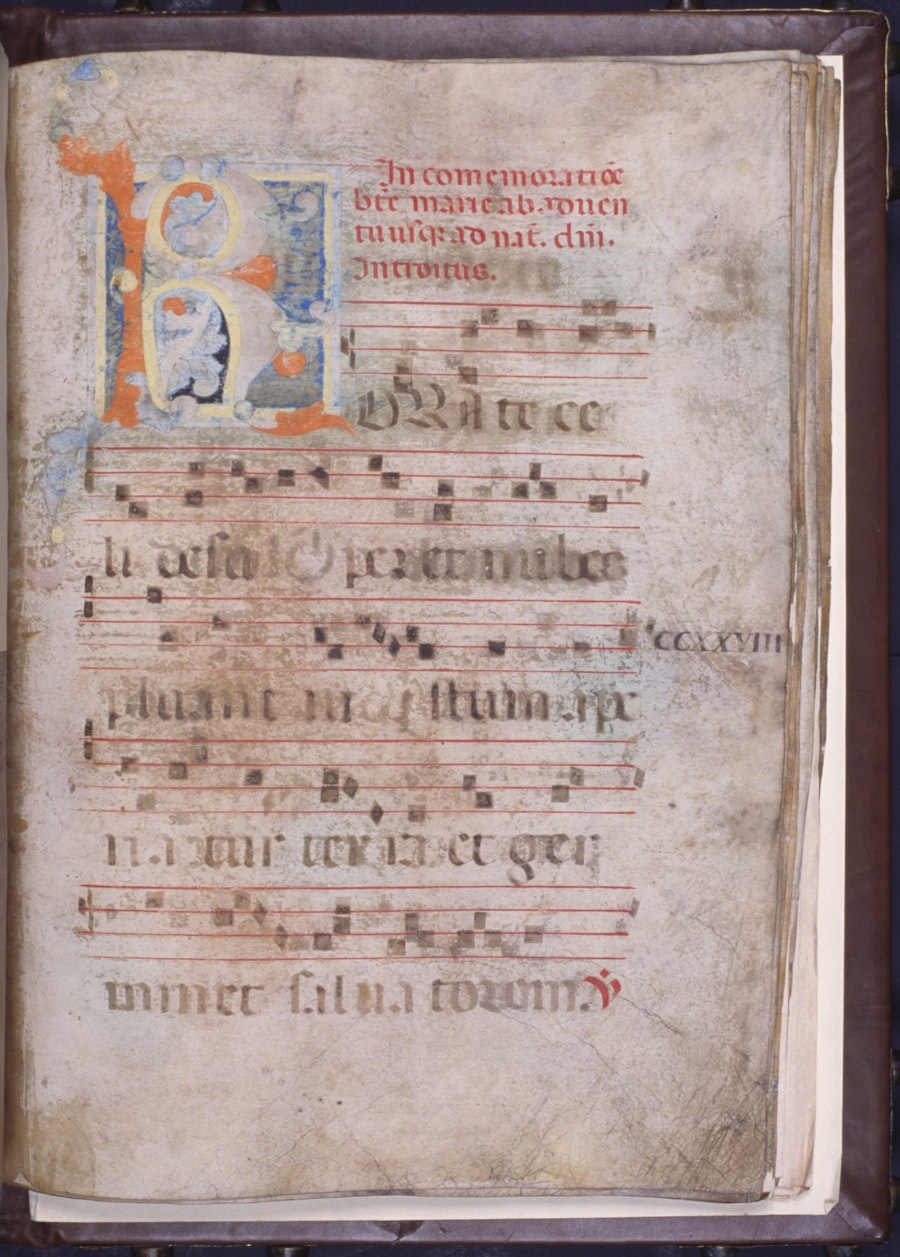 In comemoratiōe
btē marie ab aduen
tu usq; ad nat̄. dn̄i.
Introitus.
RORate ce
li desup et nubes
pluant iustum ape
CCXXVIII
riatur terra et ger
minet saluatorem. V̇